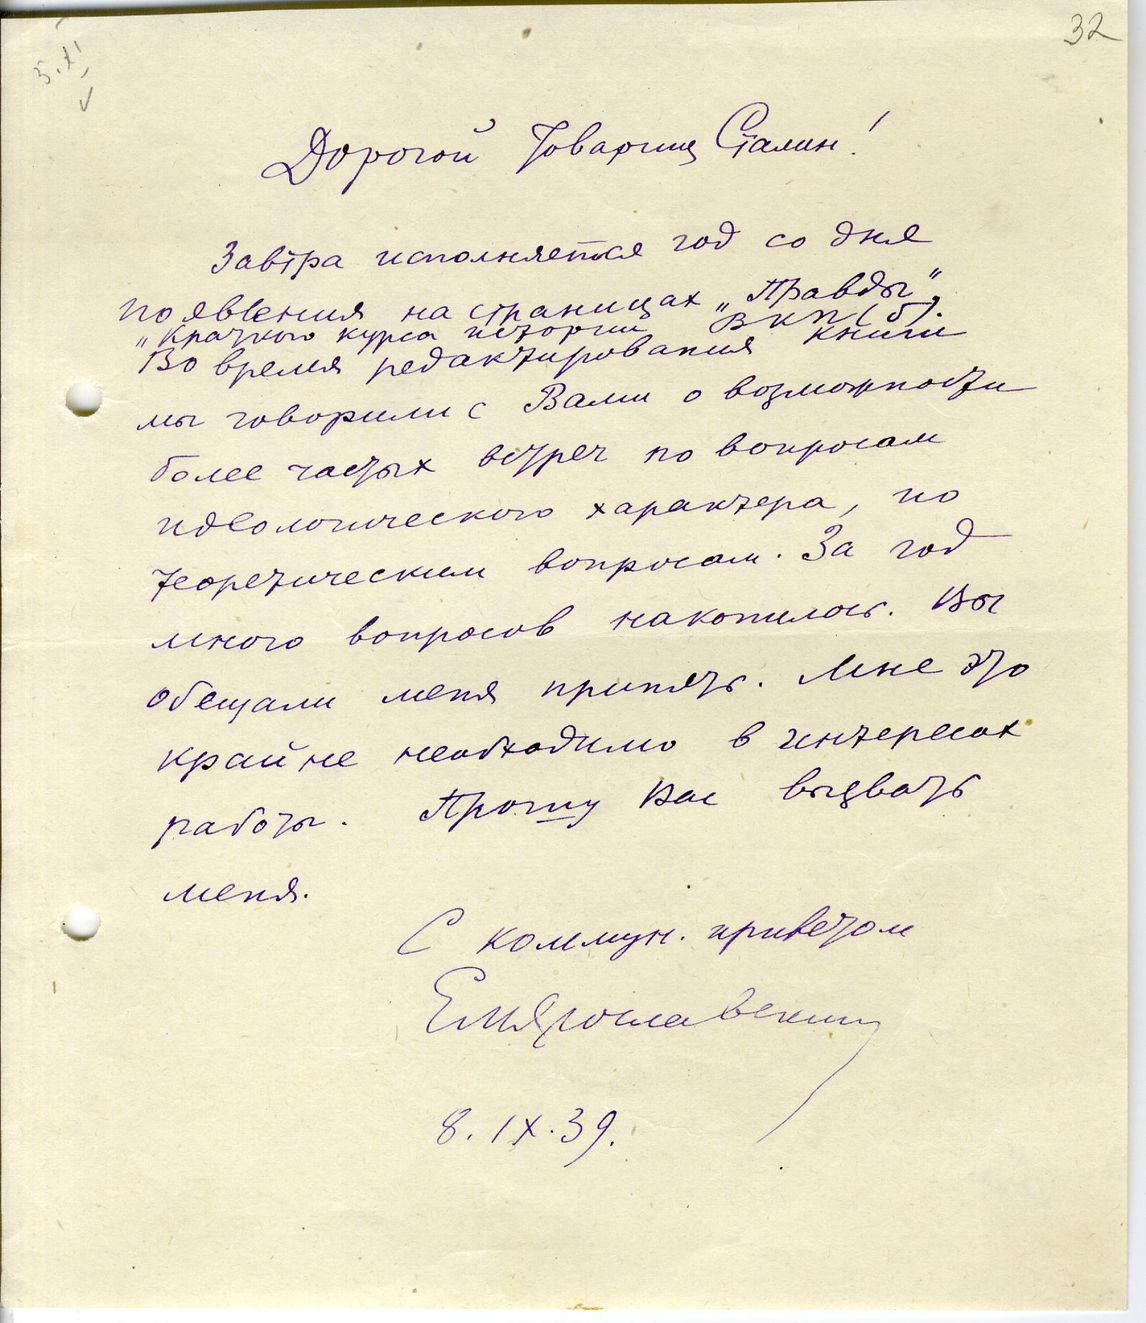 32
5.XI
Дорогой Товарищ Сталин!
Завтра исполняется год со дня
появления на страницах „Правды"
„Краткого курса истории ВКП(б).
Во время редактирования книги
мы говорили с Вами о возможности
более частых встреч по вопросам
идеологического характера, по
теоретическим вопросам. За год
много вопросов накопилось. Вы
обещали меня принять. Мне это
крайне необходимо в интересах
работы. Прошу Вас вызвать
меня.
С коммун. приветом
Ем Ярославский
8.IX.39.